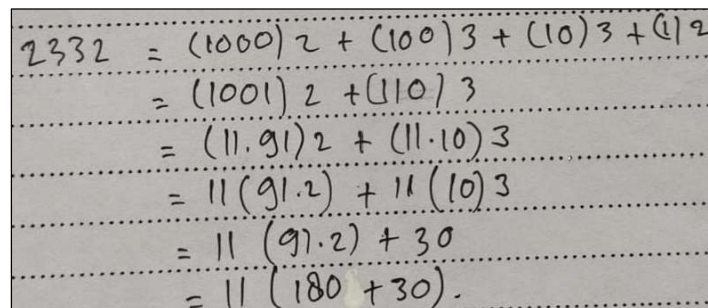 2332 = (1000)2 + (100)3 + (10)3 + (1)2
= (1001)2 + (110)3
= (11.91)2 + (11.10)3
= 11(91.2) + 11(10)3
= 11(91.2) + 30
= 11(180 + 30).